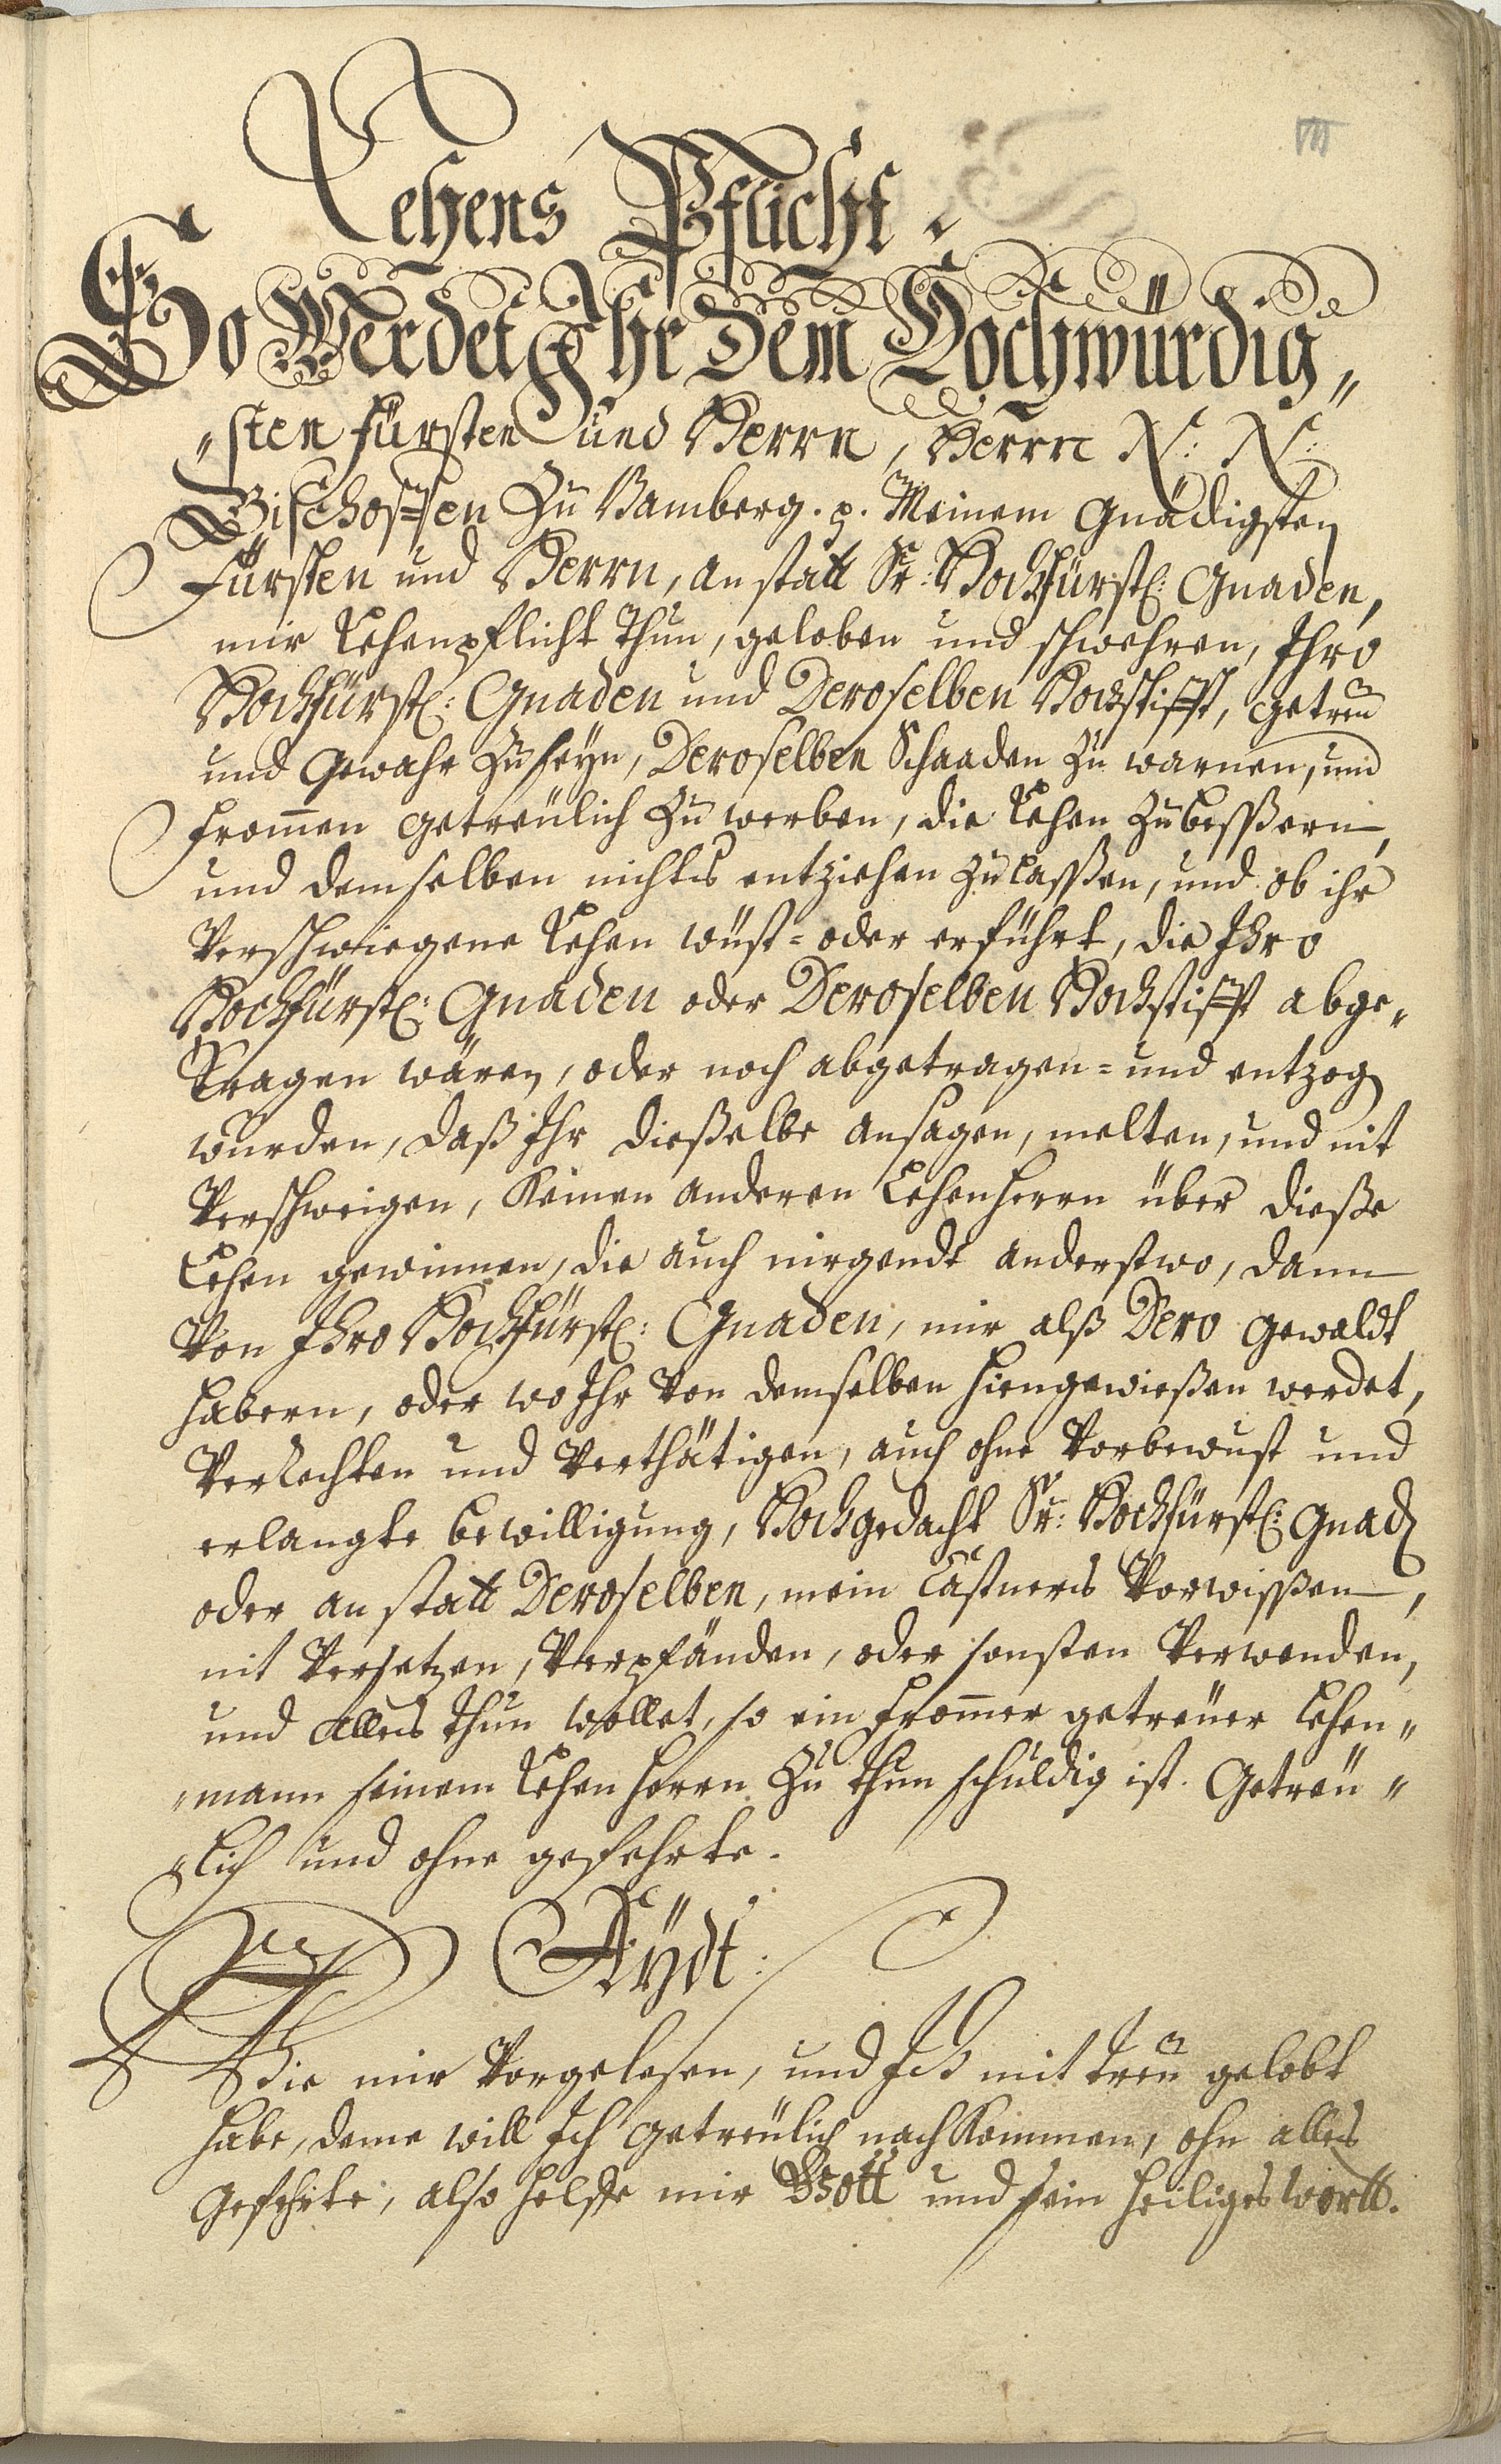 VII
Lehens Pflicht.
So Werdet Ihr Dem Hochwürdig„
„sten Fürsten und Herrn, Herrn N: N:
Bischoffen Zu Bamberg. p. Meinem Gnädigsten
Fürsten und Herrn, an statt Sr: Hochfürstl: Gnaden,
mir Lehenpflicht Thun, geloben und schwehren, Ihro
Hochfürstl: Gnaden und Deroselben Hochstifft, getreu
und Gewahr Zu seyn, Deroselben Schaaden Zu warnen, und
from̄en getreülich Zu werben, die Lehen Zubeßern,
und demselben nichts entziehen Zulaßen, und ob ihr
Verschwiegene Lehen wüst= oder erführt, die Ihro
Hochfürstl: Gnaden oder Deroselben Hochstifft abge„
Tragen wären, oder noch abgetragen= und entzog
wurden, daß Ihr dießelbe ansagen, melten, und nit
Verschweigen, Keinen anderen Lehenherrn über dieße
Lehen gewinnen, die auch nirgendt anderstwo, dann
Von Ihro Hochfürstl: Gnaden, mir alß Dero Gewaldt
habern, oder wo Ihr Von demselben hiengewießen werdet,
Verrechten und Verthätigen, auch ohne Vorbewust und
erlangte bewilligung, Hochgedacht Sr: Hochfürstl: Gnad
oder an statt Deroselben, mein Castners Vorwißen,
nit Versetzen, Verpfänden, oder sonsten Verwenden,
und Alles Thun wollet, so ein from̄er getreüer Lehen„
„mann seinem Lehen Herrn Zu thun schuldig ist. Getreü„
„lich und ohne gefehrte.
Aÿdt:
Wie mir Vorgelesen, und Ich mit treu gelobt
habe, deme will Ich Getreülich nachkommen, ohn alles
Gefehrte, also helffe mir Gott und sein heiliges Wortt.